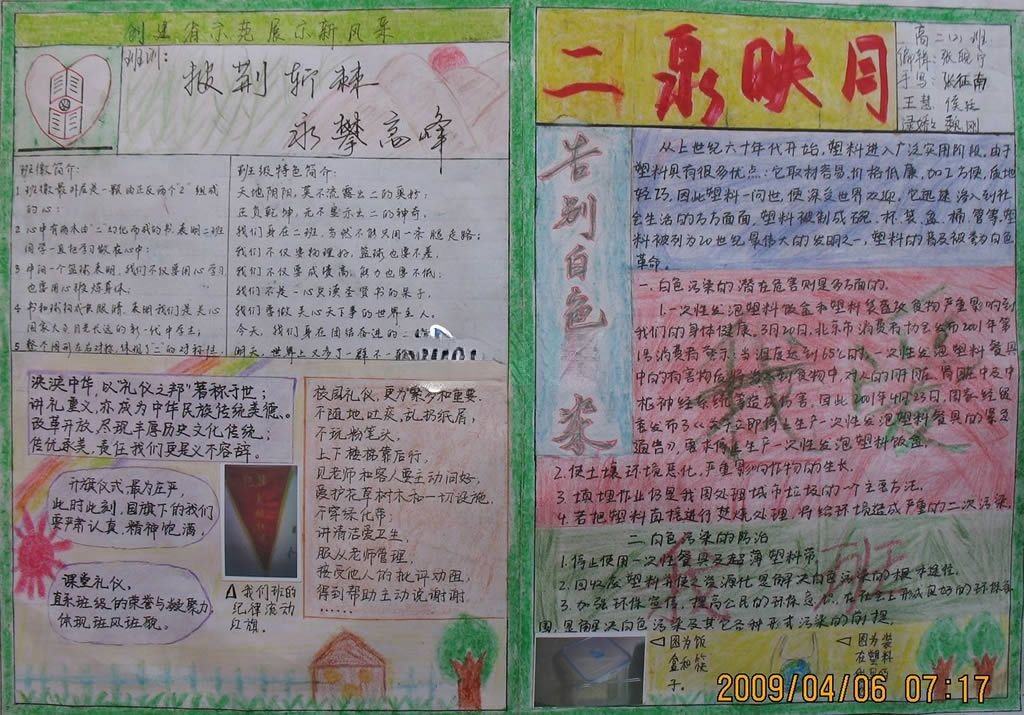 创建省示范展示新风采
班训:
披荆斩棘
永攀高峰
班徽简介:
1 班徽最外层是一颗由正反两个"2"组成
的心;
2 心中有两本由"二"幻化而成的书,表明二班
同学一直把学习放在心中;
3 中间一个篮球表明,我们不仅要用心学习,
也要用心锻炼身体;
4 书和球构成一双眼睛,表明我们是关心
国家大事目光长远的新一代中学生;
5 整个图形左右对称,体现了"二"的对称性
班级特色简介:
天地阴阳,莫不流露出二的奥妙;
正负乾坤,无不显示出二的神奇,
我们身在二班,当然不能只用一条腿走路;
我们不仅要物理好,篮球也要不差,
我们不仅要成绩高,能力也要不低;
我们不是一心只读圣贤书的呆子,
我们要做关心天下事的世界主人,
今天,我们身在团结奋进的二
明天,世界上又多了一群不一般
泱泱中华,以"礼仪之邦"著称于世;
讲礼重义,亦成为中华民族传统美德。
改革开放,尽现丰厚历史文化传统;
传优承美,责任我们更是义不容辞。
升旗仪式,最为庄严,
此时此刻,国旗下的我们
要严肃认真,精神饱满,
课堂礼仪,
直系班级的荣誉与凝聚力,
体现班风班貌。
△我们班的
纪律流动
红旗。
校园礼仪,更为繁多和重要.
不随地吐痰,乱扔纸屑,
不玩粉笔头,
上下楼梯靠右行,
见老师和客人要主动问好,
爱护花草树木和一切设施,
不穿绿化带;
讲清洁爱卫生,
服从老师管理,
接受他人的批评劝阻,
得到帮助主动说谢谢.
......
二泉映月
高二(2)班
编辑:张晓宁
手写:张征南
王慧 侯
魏刚
告别白色污染
从上世纪六十年代开始,塑料进入广泛实用阶段,由于
塑料具有很多优点:它取材容易,价格低廉,加工方便,质地
轻巧,因此塑料一问世,便深受世界欢迎,它迅速渗入到社
会生活的方方面面.塑料被制成碗、杯、袋、盆、桶、管等.塑
料被列为20世纪最伟大的发明之一,塑料的普及被誉为白色
革命。
一.白色污染的潜在危害则是多方面的.
1.一次性发泡塑料饭盒和塑料袋盛装食物严重影响到
我们的身体健康.3月20日,北京市消费者协会发布2001年第
1号消费者警示:当温度达到65℃时,一次性发泡塑料餐具
中的有害物质将渗入到食物中,对人的肝脏、肾脏及中
枢神经系统等造成损害,因此2001年4月23日,国家经贸
委发布了《关于立即停止生产一次性发泡塑料餐具的紧急
通告》,要求停止生产一次性发泡塑料饭盒.
2.使土壤环境恶化,严重影响作物的生长.
3.填埋作业仍是我国处理城市垃圾的一个主要方法.
4.若把塑料直接进行焚烧处理,将给环境造成严重的二次污染.
二.白色污染的防治
1.停止使用一次性餐具及超薄塑料袋.
2.回收废塑料并使之资源化是解决白色污染的根本途径.
3.加强环保宣传,提高公民的环保意识,在社会上形成良好的环保氛
围,是解决白色污染及其它各种形式污染的前提.
◁图为饭
盒和筷
子。
◁图为装
在塑料
2009/04/06 07:17